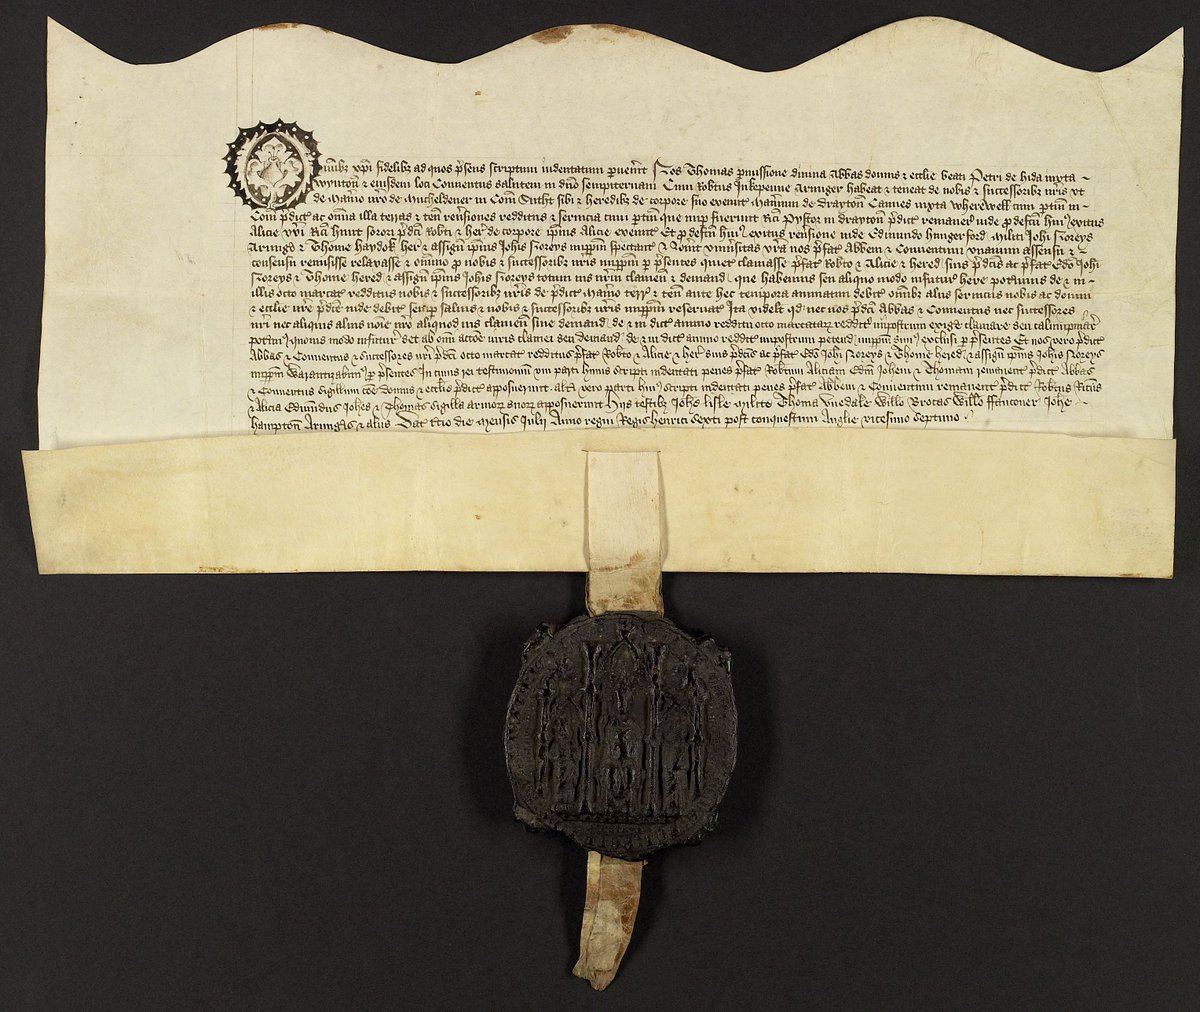 Omībȝ xpi fidelibȝ ad quos p̄sens scriptum indentatum pervēit Nos Thomas pmissione divina Abbas domus & ecclie beati Petri de hida iuxta
Wynton & eiusdem loci Conventus salutem in dn̄o sempiternam Cum Rob̄tus Inkepenne Armiger habeat & teneat de nobis & successoribȝ nr̄is vt
de Man̄io nr̄o de Micheldener in Com̄ Suth̄t sibi & heredibȝ de corpore suo Manium de Drayton Camies iuxta Wherewell cum ptin̄ in
Com̄ p̄dict̄ ac omnia illa terras & ten̄ reusiones redditus & servicia cum ptin̄ que nup fuerunt Ric̄i Pystor in drayton p̄dict̄ remaner̄ inde p̄ defect̄u huiꝰ exitus
Alicie vx̄i Ric̄i hunt sorori p̄dc̄i Rob̄ti & her̄ de corpore ip̄ius Alicie Et p̄ defect̄u huiꝰ exitus reusione inde Edmundo hungerford Militi Joh̄i Noreys
Armigo & Thome Haydok her̄ & assign̄ ip̄ius Joh̄is Noreys impp̄m spectant̄ Nov̄it vniusitas vr̄a nos p̄fat̄ Abb̄em & Conventum vnanimi assensu &
consensu remisisse relaxasse & omnino p̄ nobis & successoribȝ nr̄is impp̄m p p̄sentes quiet̄ clamasse p̄fat̄ Rob̄to & Alicie & hered̄ suis p̄dc̄is ac p̄fat̄ Ed̄o Joh̄i
Noreys & Thome hered̄ & assign̄ ip̄ius Joh̄is Noreys totum ius nr̄m clameum & demand̄ que habemus seu aliquo modo infutur̄ here poterimus de & in
illis octo marcat̄ redditus nobis & successoribȝ nr̄is de p̄dict̄ Man̄io terr̄ & ten̄ ante hec tempora annuatim debit̄ omībȝ aliis serviciis nobis ac domui
& ecclie nr̄e p̄dict̄ inde debit̄ semp salvis & nobis & successoribȝ nr̄is impp̄m reservat̄ Ita videlt̄ qd̄ nec nos p̄dc̄i Abbas & Conventus nec successores
nr̄i nec aliquis alius noīe nr̄o aliquod ius clameum sive demand̄ de & in dict̄ annuo redditu octo marcatar̄ reddit̄ imposterum exig̃e clamare seu calumpniar̄e
potim̄ quovis modo infutur̄ set ab om̄i acc̄oe iuris clamei seu demand̄ de & in dict̄ annuo reddit̄ imposterum petend̄ impp̄m simꝰ exclusi p p̄sentes Et nos vero p̄dict̄
Abbas & Conventus & successores nr̄i p̄dc̄i octo marcat̄ redditus p̄fat̄ Rob̄to & Alicie & her̄ suis p̄dc̄is ac p̄fat̄ Ed̄o Joh̄i Noreys & Thome hered̄ & assign̄ ip̄ius Joh̄is Noreys
impp̄m Warantizabimꝰ p p̄sentes In cuius rei testimonium vni parti huius scripti indentati penes p̄fat̄ Rob̄tum Aliciam Ed̄m Joh̄em & Thomam remanent̄ p̄dict̄ Abbas
& Conventus sigillum cōe domus & ecclie p̄dict̄ apposuerunt alt̄i vero parti huiꝰ scripti indentati penes p̄fat̄ Abb̄em & Conventum remanent̄ p̄dict̄ Rob̄tus Ric̄us
& Alicia Edmundus Joh̄es & Thomas sigilla armor̄ suor̄ apposuerunt Hiis testibȝ Joh̄e Lisle Milite Thoma Vuedale Will̄o Brocas Will̄o ffauconer Joh̄e
hampton Armig̃is & aliis Dat̄ t̄cio die Mensis Julij Anno regni Regis henrici Sexti post conquestum Anglie vicesimo septimo